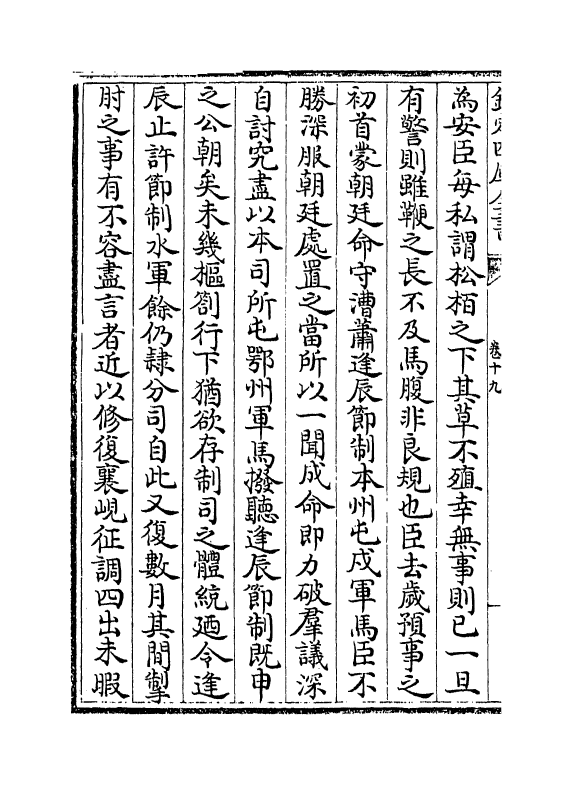 欽定四庫全書
卷十九
為安臣每私謂松栢之下其草不殖幸無事則已一旦
有警則雖鞭之長不及馬腹非良規也臣去歲預事之
初首蒙朝廷命守漕蕭逢辰節制本州屯戍軍馬臣不
勝深服朝廷處置之當所以一聞成命即力破羣議深
自討究盡以本司所屯鄂州軍馬撥聽逢辰節制既申
之公朝矣未幾樞劄行下猶欲存制司之體統廼令逢
辰止許節制水軍餘仍隸分司自此又復數月其間掣
肘之事有不容盡言者近以修復襄峴征調四出未暇